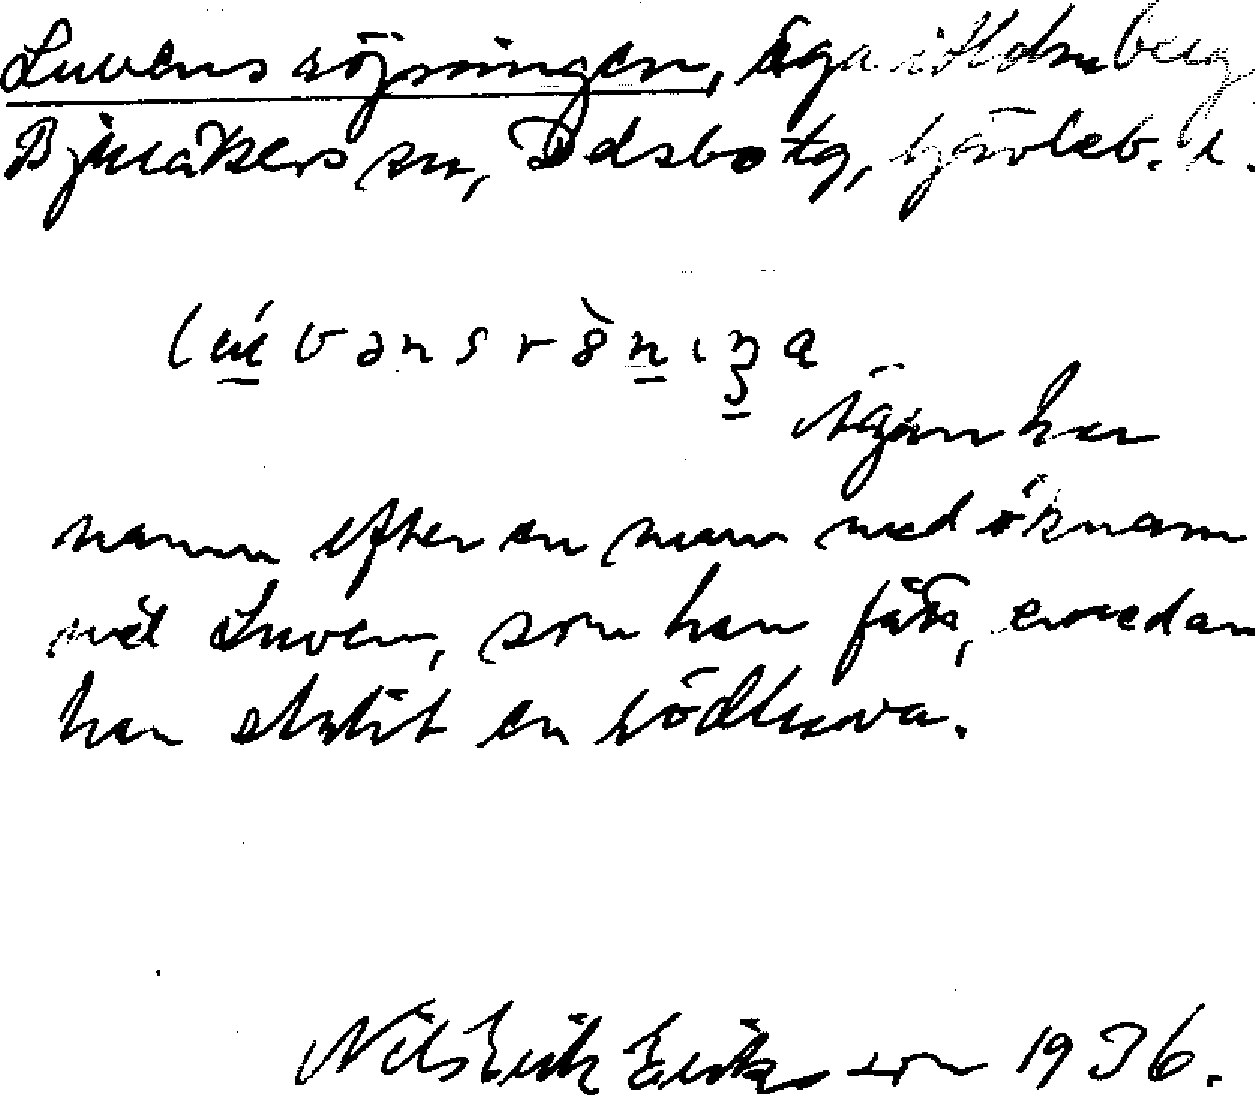 Luvens röjningen, äga i Holmberg
Bjuråkers sn, Delsbo tg, Gävleb. l.
Ägan har
namn efter en man med öknam
net Luven, som han fått, emedan
han stulit en rödluva.
Nils Erik Eriksson 1936.